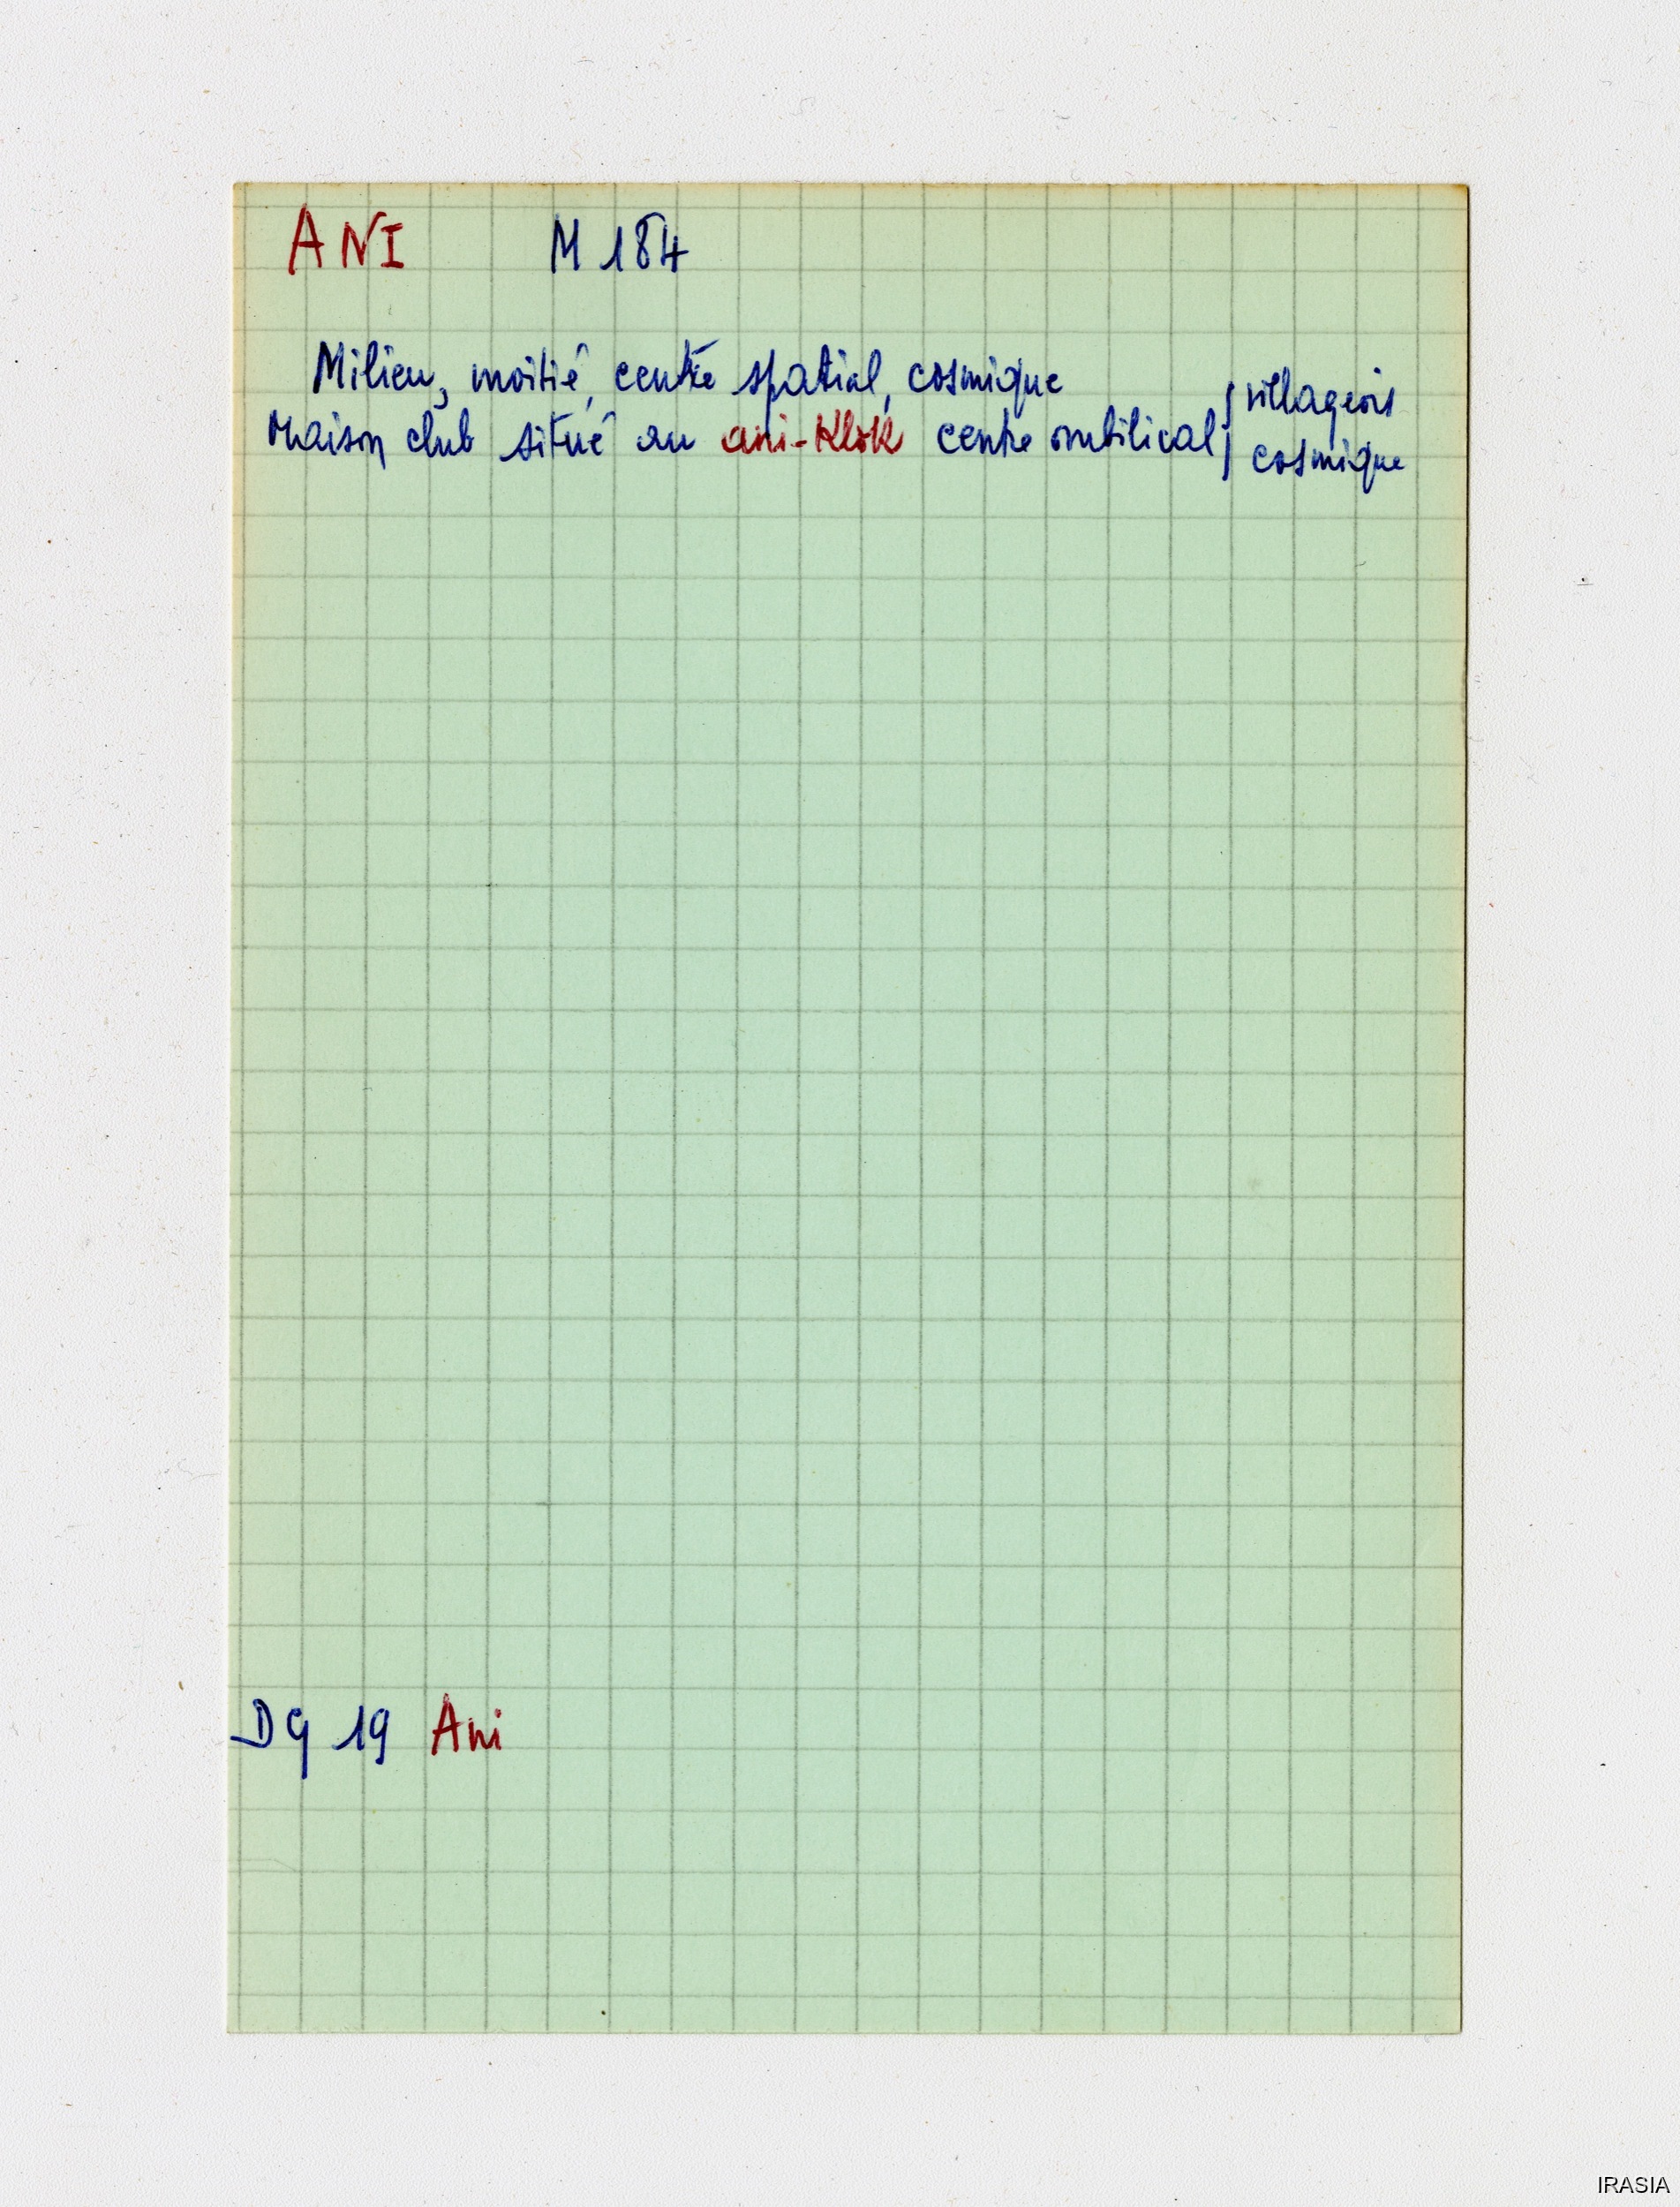 ANI M 184
Milieu, moitié, centre spatial, cosmique
Maison club situé au ani-Klok centre ombilical { villageois
cosmique
DG 19 Ani
IRASIA